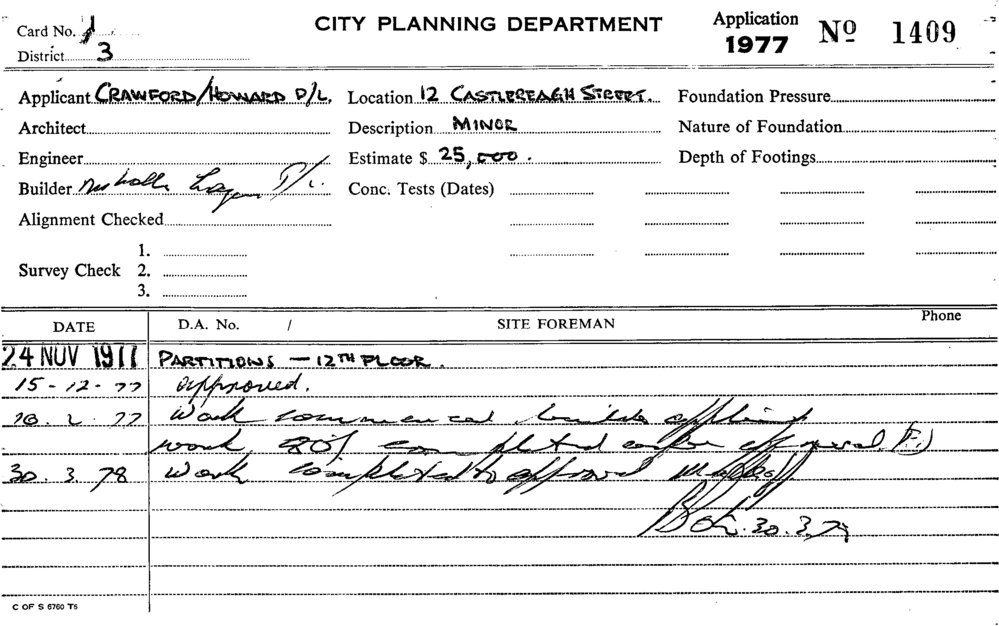 CITY PLANNING DEPARTMENT
Card No. 1
District 3
Application 1977 Nº 1409
Applicant CRAWFORD/HOWARD P/L. Location 12 CASTLEREAGH STREET. Foundation Pressure
Architect Description MINOR Nature of Foundation
Engineer Estimate $ 25,000. Depth of Footings
Builder P/L. Conc. Tests (Dates)
Alignment Checked
Survey Check 1.
2.
3.
DATE D.A. No. / SITE FOREMAN Phone
24 NOV 1977 PARTITIONS — 12TH FLOOR.
15-12-77 approved.
10. 2. 77 Work commenced
work 80% completed
30. 3. 78 Work completed to approval
30.3.78
C OF S 6760 T5